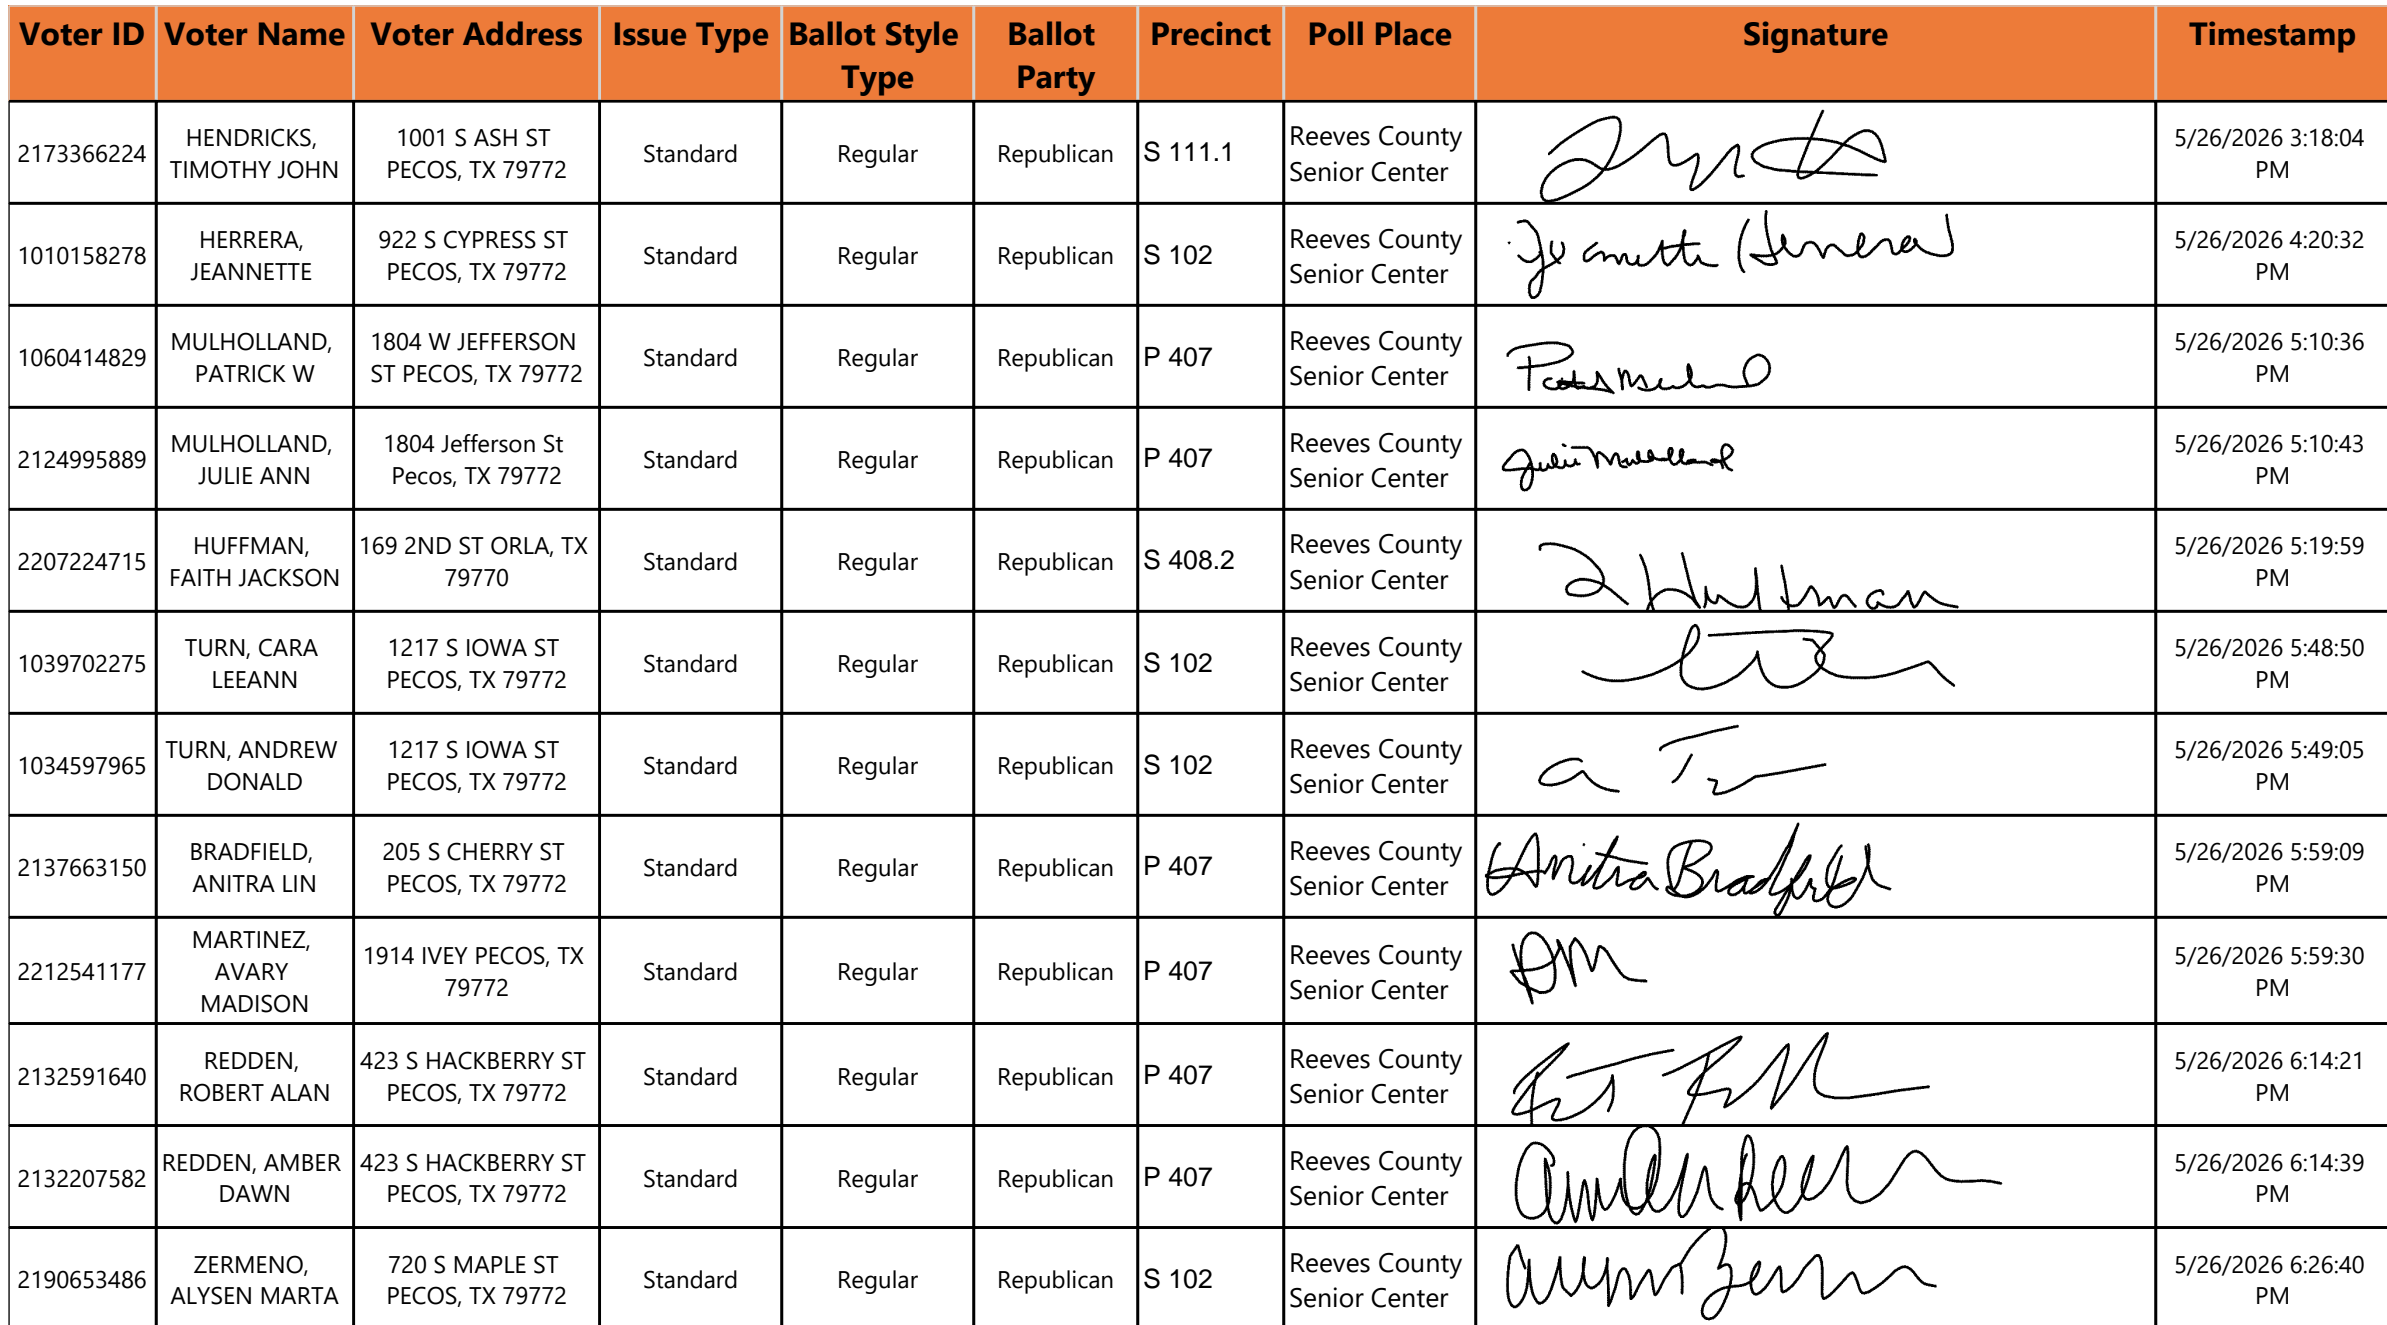 Voter ID Voter Name Voter Address Issue Type Ballot Style Type Ballot Party Precinct Poll Place Signature Timestamp
2173366224 HENDRICKS, TIMOTHY JOHN 1001 S ASH ST PECOS, TX 79772 Standard Regular Republican S 111.1 Reeves County Senior Center 5/26/2026 3:18:04 PM
1010158278 HERRERA, JEANNETTE 922 S CYPRESS ST PECOS, TX 79772 Standard Regular Republican S 102 Reeves County Senior Center Jeannette Herrera 5/26/2026 4:20:32 PM
1060414829 MULHOLLAND, PATRICK W 1804 W JEFFERSON ST PECOS, TX 79772 Standard Regular Republican P 407 Reeves County Senior Center 5/26/2026 5:10:36 PM
2124995889 MULHOLLAND, JULIE ANN 1804 Jefferson St Pecos, TX 79772 Standard Regular Republican P 407 Reeves County Senior Center Julie Mulholland 5/26/2026 5:10:43 PM
2207224715 HUFFMAN, FAITH JACKSON 169 2ND ST ORLA, TX 79770 Standard Regular Republican S 408.2 Reeves County Senior Center Huffman 5/26/2026 5:19:59 PM
1039702275 TURN, CARA LEEANN 1217 S IOWA ST PECOS, TX 79772 Standard Regular Republican S 102 Reeves County Senior Center 5/26/2026 5:48:50 PM
1034597965 TURN, ANDREW DONALD 1217 S IOWA ST PECOS, TX 79772 Standard Regular Republican S 102 Reeves County Senior Center 5/26/2026 5:49:05 PM
2137663150 BRADFIELD, ANITRA LIN 205 S CHERRY ST PECOS, TX 79772 Standard Regular Republican P 407 Reeves County Senior Center Anitra Bradfield 5/26/2026 5:59:09 PM
2212541177 MARTINEZ, AVARY MADISON 1914 IVEY PECOS, TX 79772 Standard Regular Republican P 407 Reeves County Senior Center AM 5/26/2026 5:59:30 PM
2132591640 REDDEN, ROBERT ALAN 423 S HACKBERRY ST PECOS, TX 79772 Standard Regular Republican P 407 Reeves County Senior Center 5/26/2026 6:14:21 PM
2132207582 REDDEN, AMBER DAWN 423 S HACKBERRY ST PECOS, TX 79772 Standard Regular Republican P 407 Reeves County Senior Center 5/26/2026 6:14:39 PM
2190653486 ZERMENO, ALYSEN MARTA 720 S MAPLE ST PECOS, TX 79772 Standard Regular Republican S 102 Reeves County Senior Center 5/26/2026 6:26:40 PM